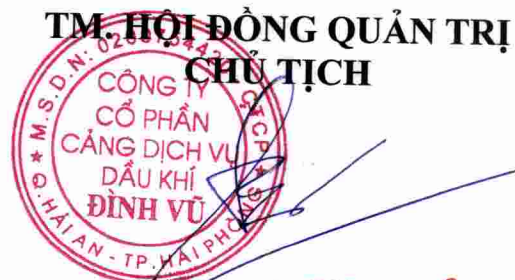 TM. HỘI ĐỒNG QUẢN TRỊ
CHỦ TỊCH
M.S.D.N: C.T.C.P
CÔNG TY
CỔ PHẦN
CẢNG DỊCH VỤ
DẦU KHÍ
ĐÌNH VŨ
Q. HẢI AN - TP. HẢI PHÒNG